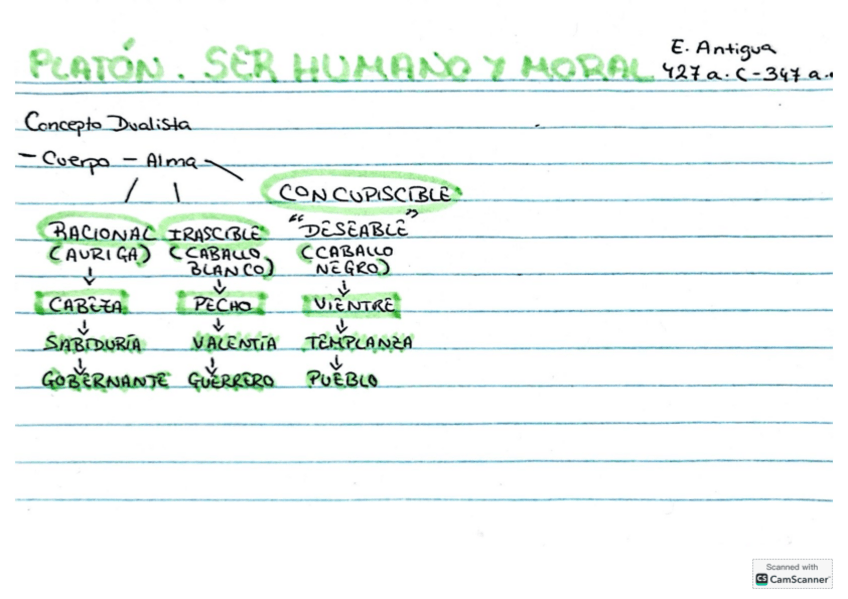 PLATÓN. SER HUMANO Y MORAL
E. Antigua
427 a.C - 347 a.
Concepto Dualista
- Cuerpo - Alma
CONCUPISCIBLE
RACIONAL IRASCIBLE "DESEABLE"
(AURIGA) (CABALLO BLANCO) (CABALLO NEGRO)
CABEZA PECHO VIENTRE
SABIDURÍA VALENTÍA TEMPLANZA
GOBERNANTE GUERRERO PUEBLO
Scanned with
CS CamScanner